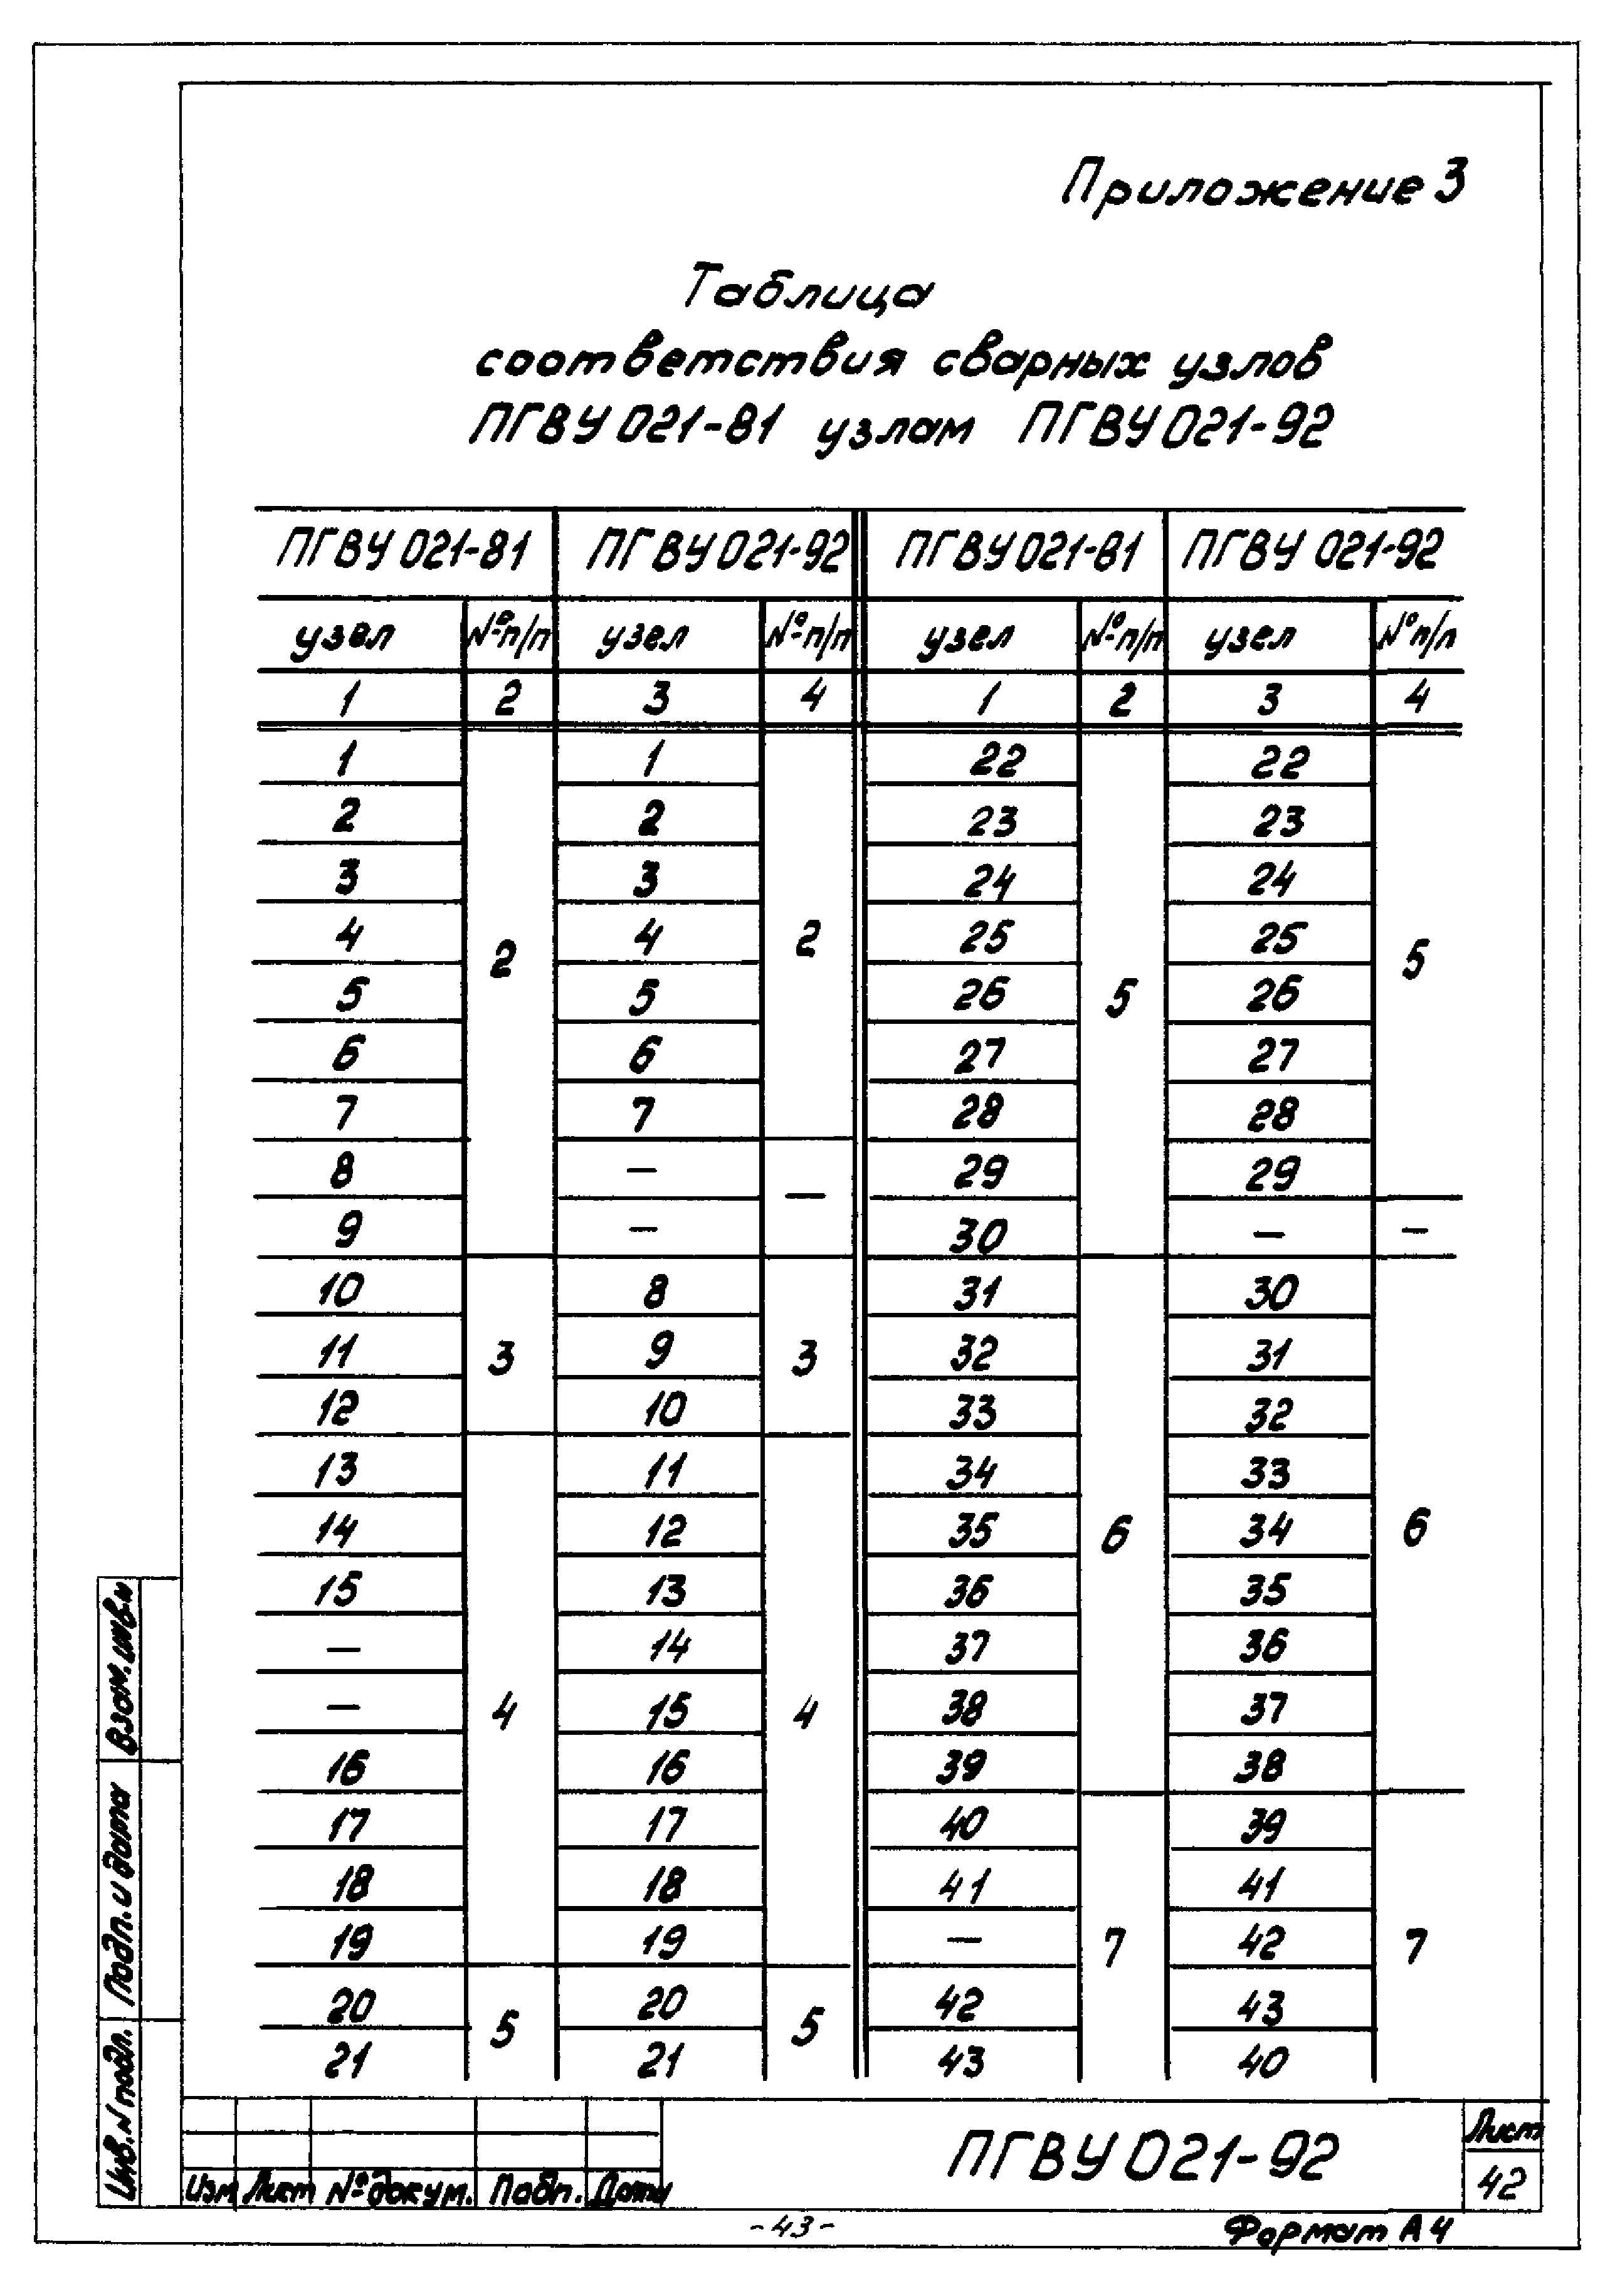 Приложение 3
Таблица
соответствия сварных узлов
ПГВУ 021-81 узлам ПГВУ 021-92
ПГВУ 021-81 ПГВУ 021-92 ПГВУ 021-81 ПГВУ 021-92
узел №п/п узел №п/п узел №п/п узел №п/п
1 2 3 4 1 2 3 4
1 1 22 22
2 2 23 23
3 3 24 24
4 2 4 2 25 25 5
5 5 26 5 26
6 6 27 27
7 7 28 28
8 — — 29 29
9 — 30 — —
10 8 31 30
11 3 9 3 32 31
12 10 33 32
13 11 34 33
14 12 35 6 34 6
15 13 36 35
— 14 37 36
— 4 15 4 38 37
16 16 39 38
17 17 40 39
18 18 41 41
19 19 — 7 42 7
20 5 20 5 42 43
21 21 43 40
Взам. инв. №
Подп. и дата
Инв. № подл.
Изм Лист № докум. Подп. Дата
ПГВУ 021-92
Лист
42
-43-
Формат А4